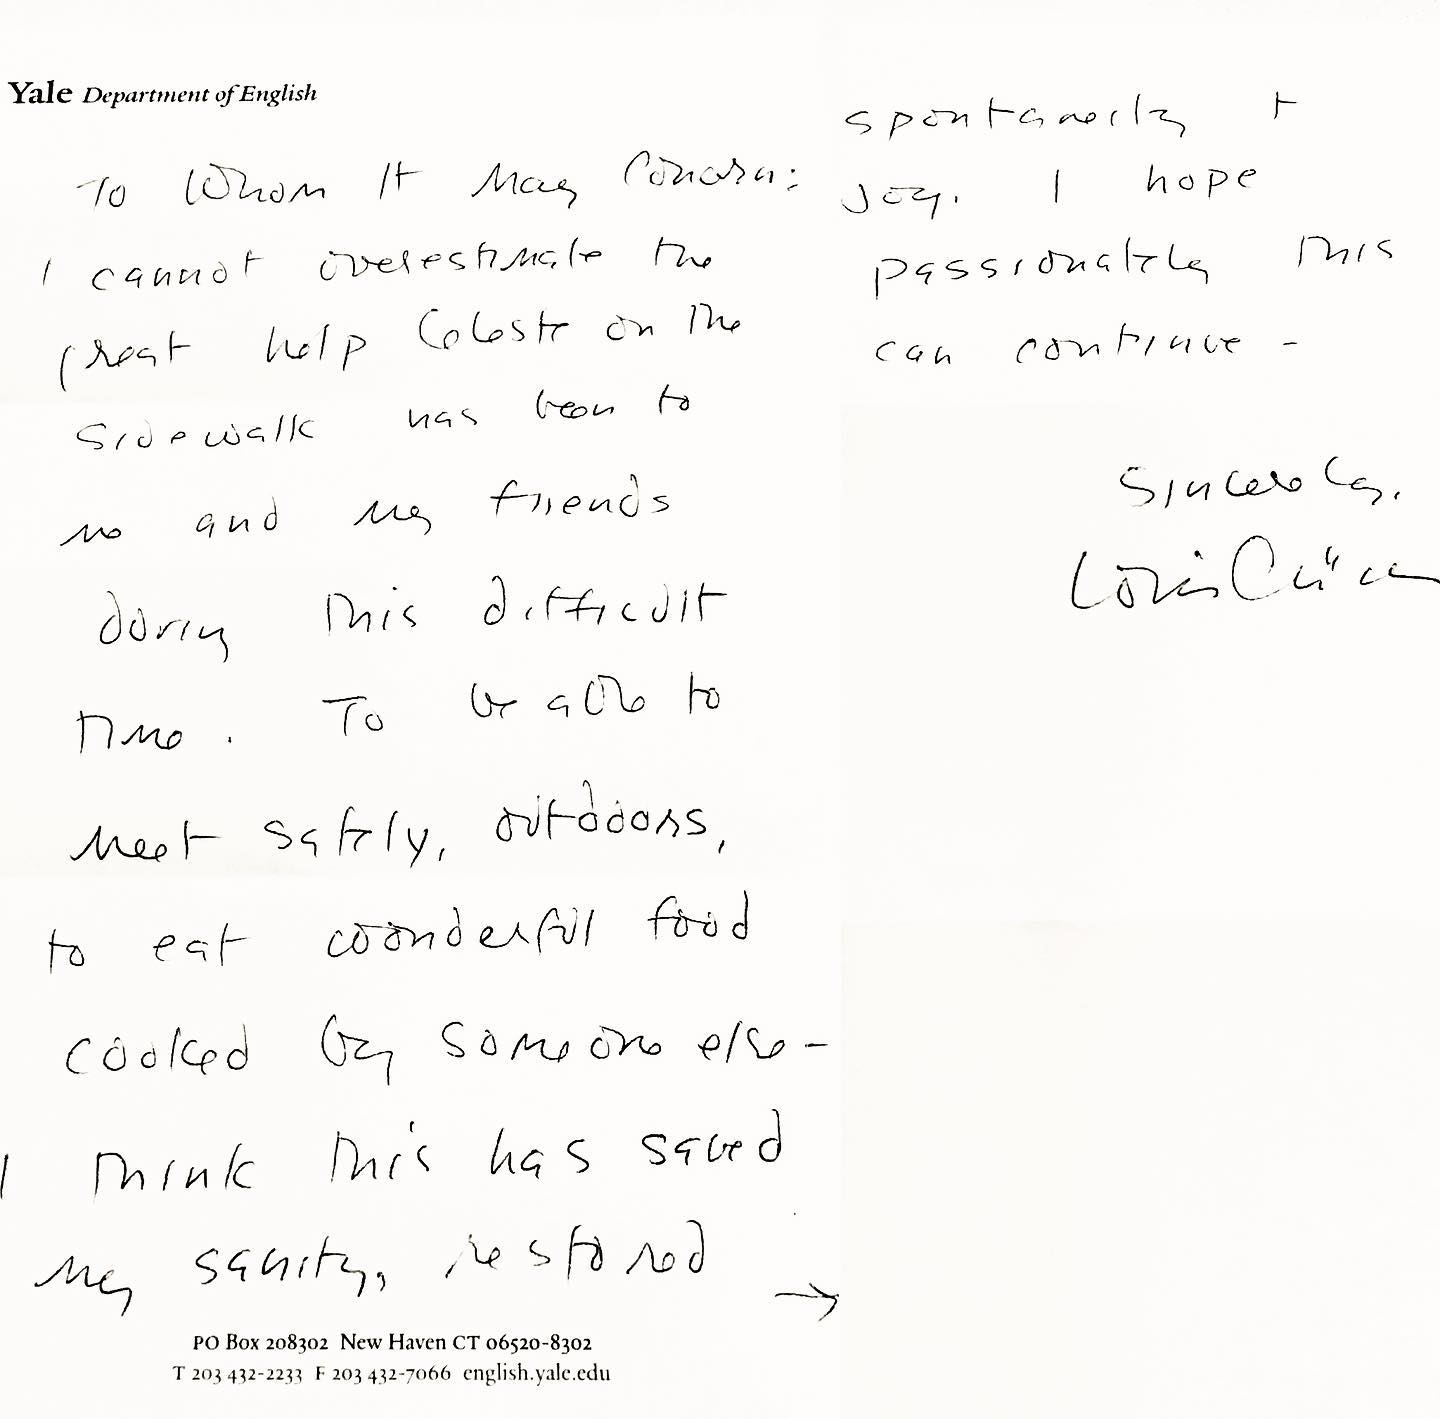 Yale Department of English
To Whom It May Concern:
I cannot overestimate the
great help Celeste on the
sidewalk has been to
me and my friends
during this difficult
time. To be able to
meet safely, outdoors,
to eat woonderful food
cooked by someone else –
I think this has saved
my sanity, restored
→
PO Box 208302 New Haven CT 06520-8302
T 203 432-2233 F 203 432-7066 english.yale.edu
spontaneity +
joy. I hope
passionately this
can continue –
Sincerely,
Louise Glück